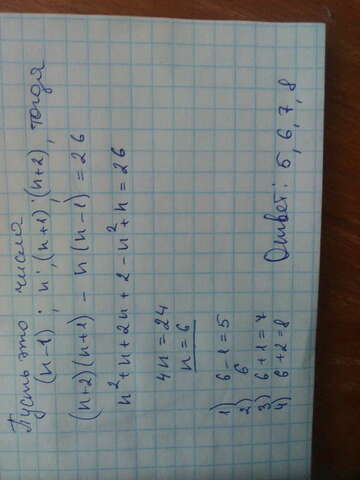 Пусть это числа
(n-1); n; (n+1); (n+2), тогда
(n+2)(n+1) - n(n-1) = 26
n²+n+2n+2-n²+n=26
4n=24
n=6
1) 6-1=5
2) 6
3) 6+1=7
4) 6+2=8
Ответ: 5, 6, 7, 8